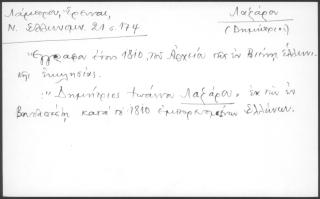 Λάμπρου, Έρευναι,
Ν. Ελληνομν. 21 σ. 174
Λαζάρου
(Δημήτριος)
"Έγγραφα έτους 1810, του Αρχείου της εν Βιέννη Ελλην.
κής Εκκλησίας.
: "Δημήτριος Ιωάννου Λαζάρου, εκ των εν
κατά το 1810 εμπορευομένων Ελλήνων.